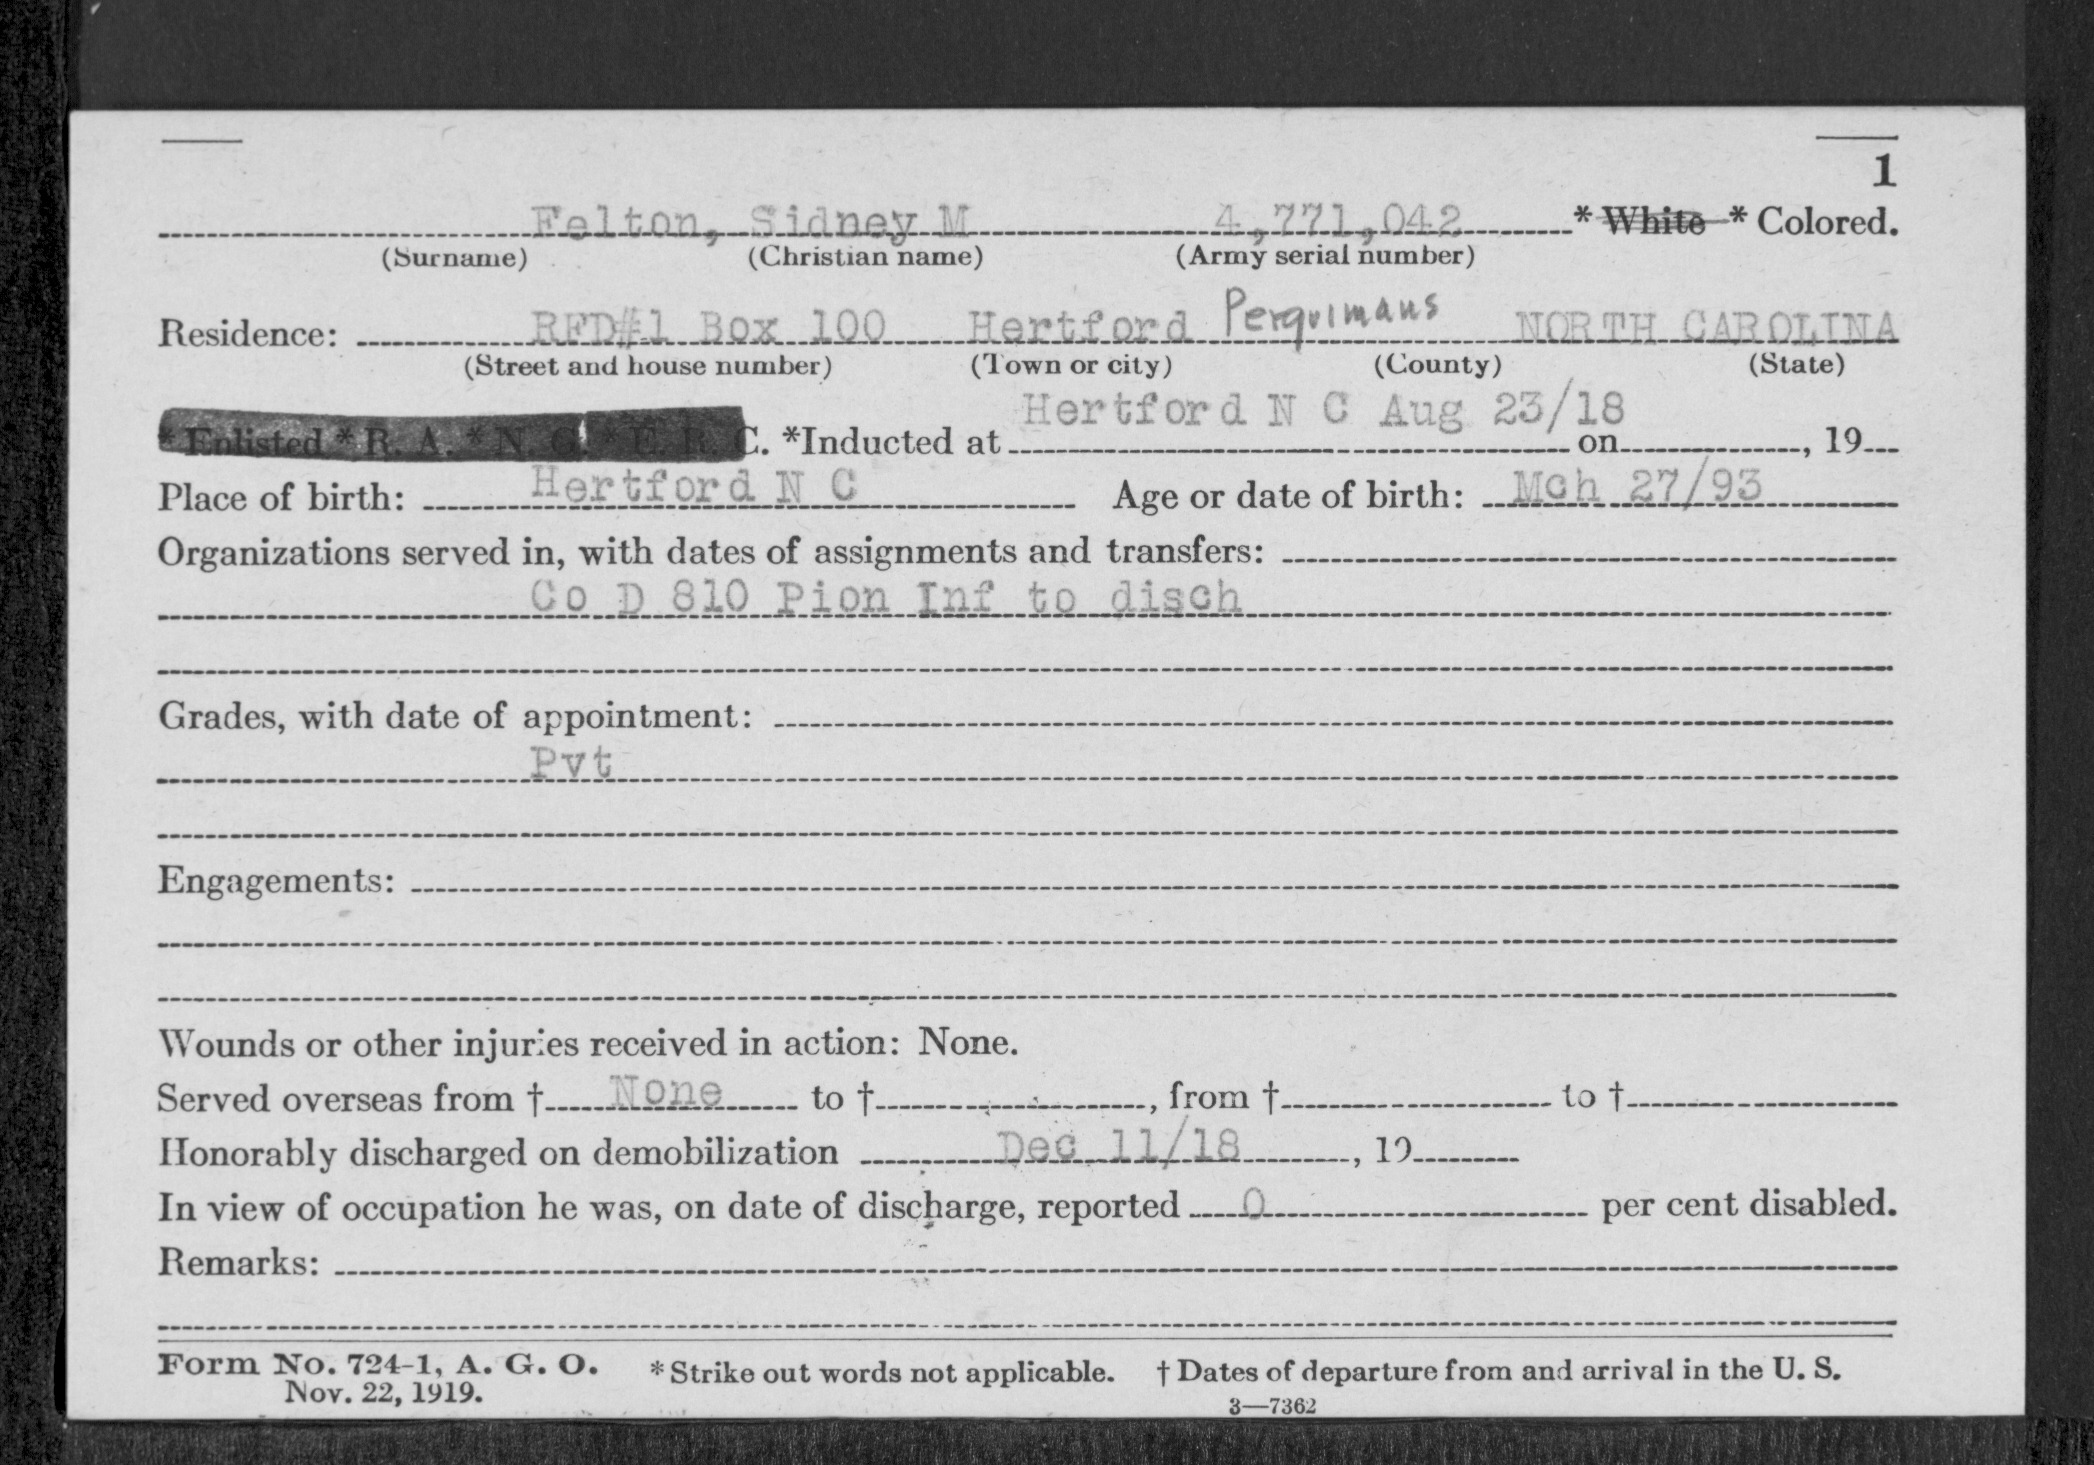 1
Felton, Sidney M 4,771,042 * White * Colored.
(Surname) (Christian name) (Army serial number)
Residence: RFD#1 Box 100 Hertford Perquimans NORTH CAROLINA
(Street and house number) (Town or city) (County) (State)
Hertford N C Aug 23/18
* Enlisted * R. A. * N. G. * E. R. C. *Inducted at on , 19
Place of birth: Hertford N C Age or date of birth: Mch 27/93
Organizations served in, with dates of assignments and transfers:
Co D 810 Pion Inf to disch
Grades, with date of appointment:
Pvt
Engagements:
Wounds or other injuries received in action: None.
Served overseas from † None to † , from † to †
Honorably discharged on demobilization Dec 11/18 , 19
In view of occupation he was, on date of discharge, reported 0 per cent disabled.
Remarks:
Form No. 724-1, A. G. O. * Strike out words not applicable. † Dates of departure from and arrival in the U. S.
Nov. 22, 1919. 3—7362